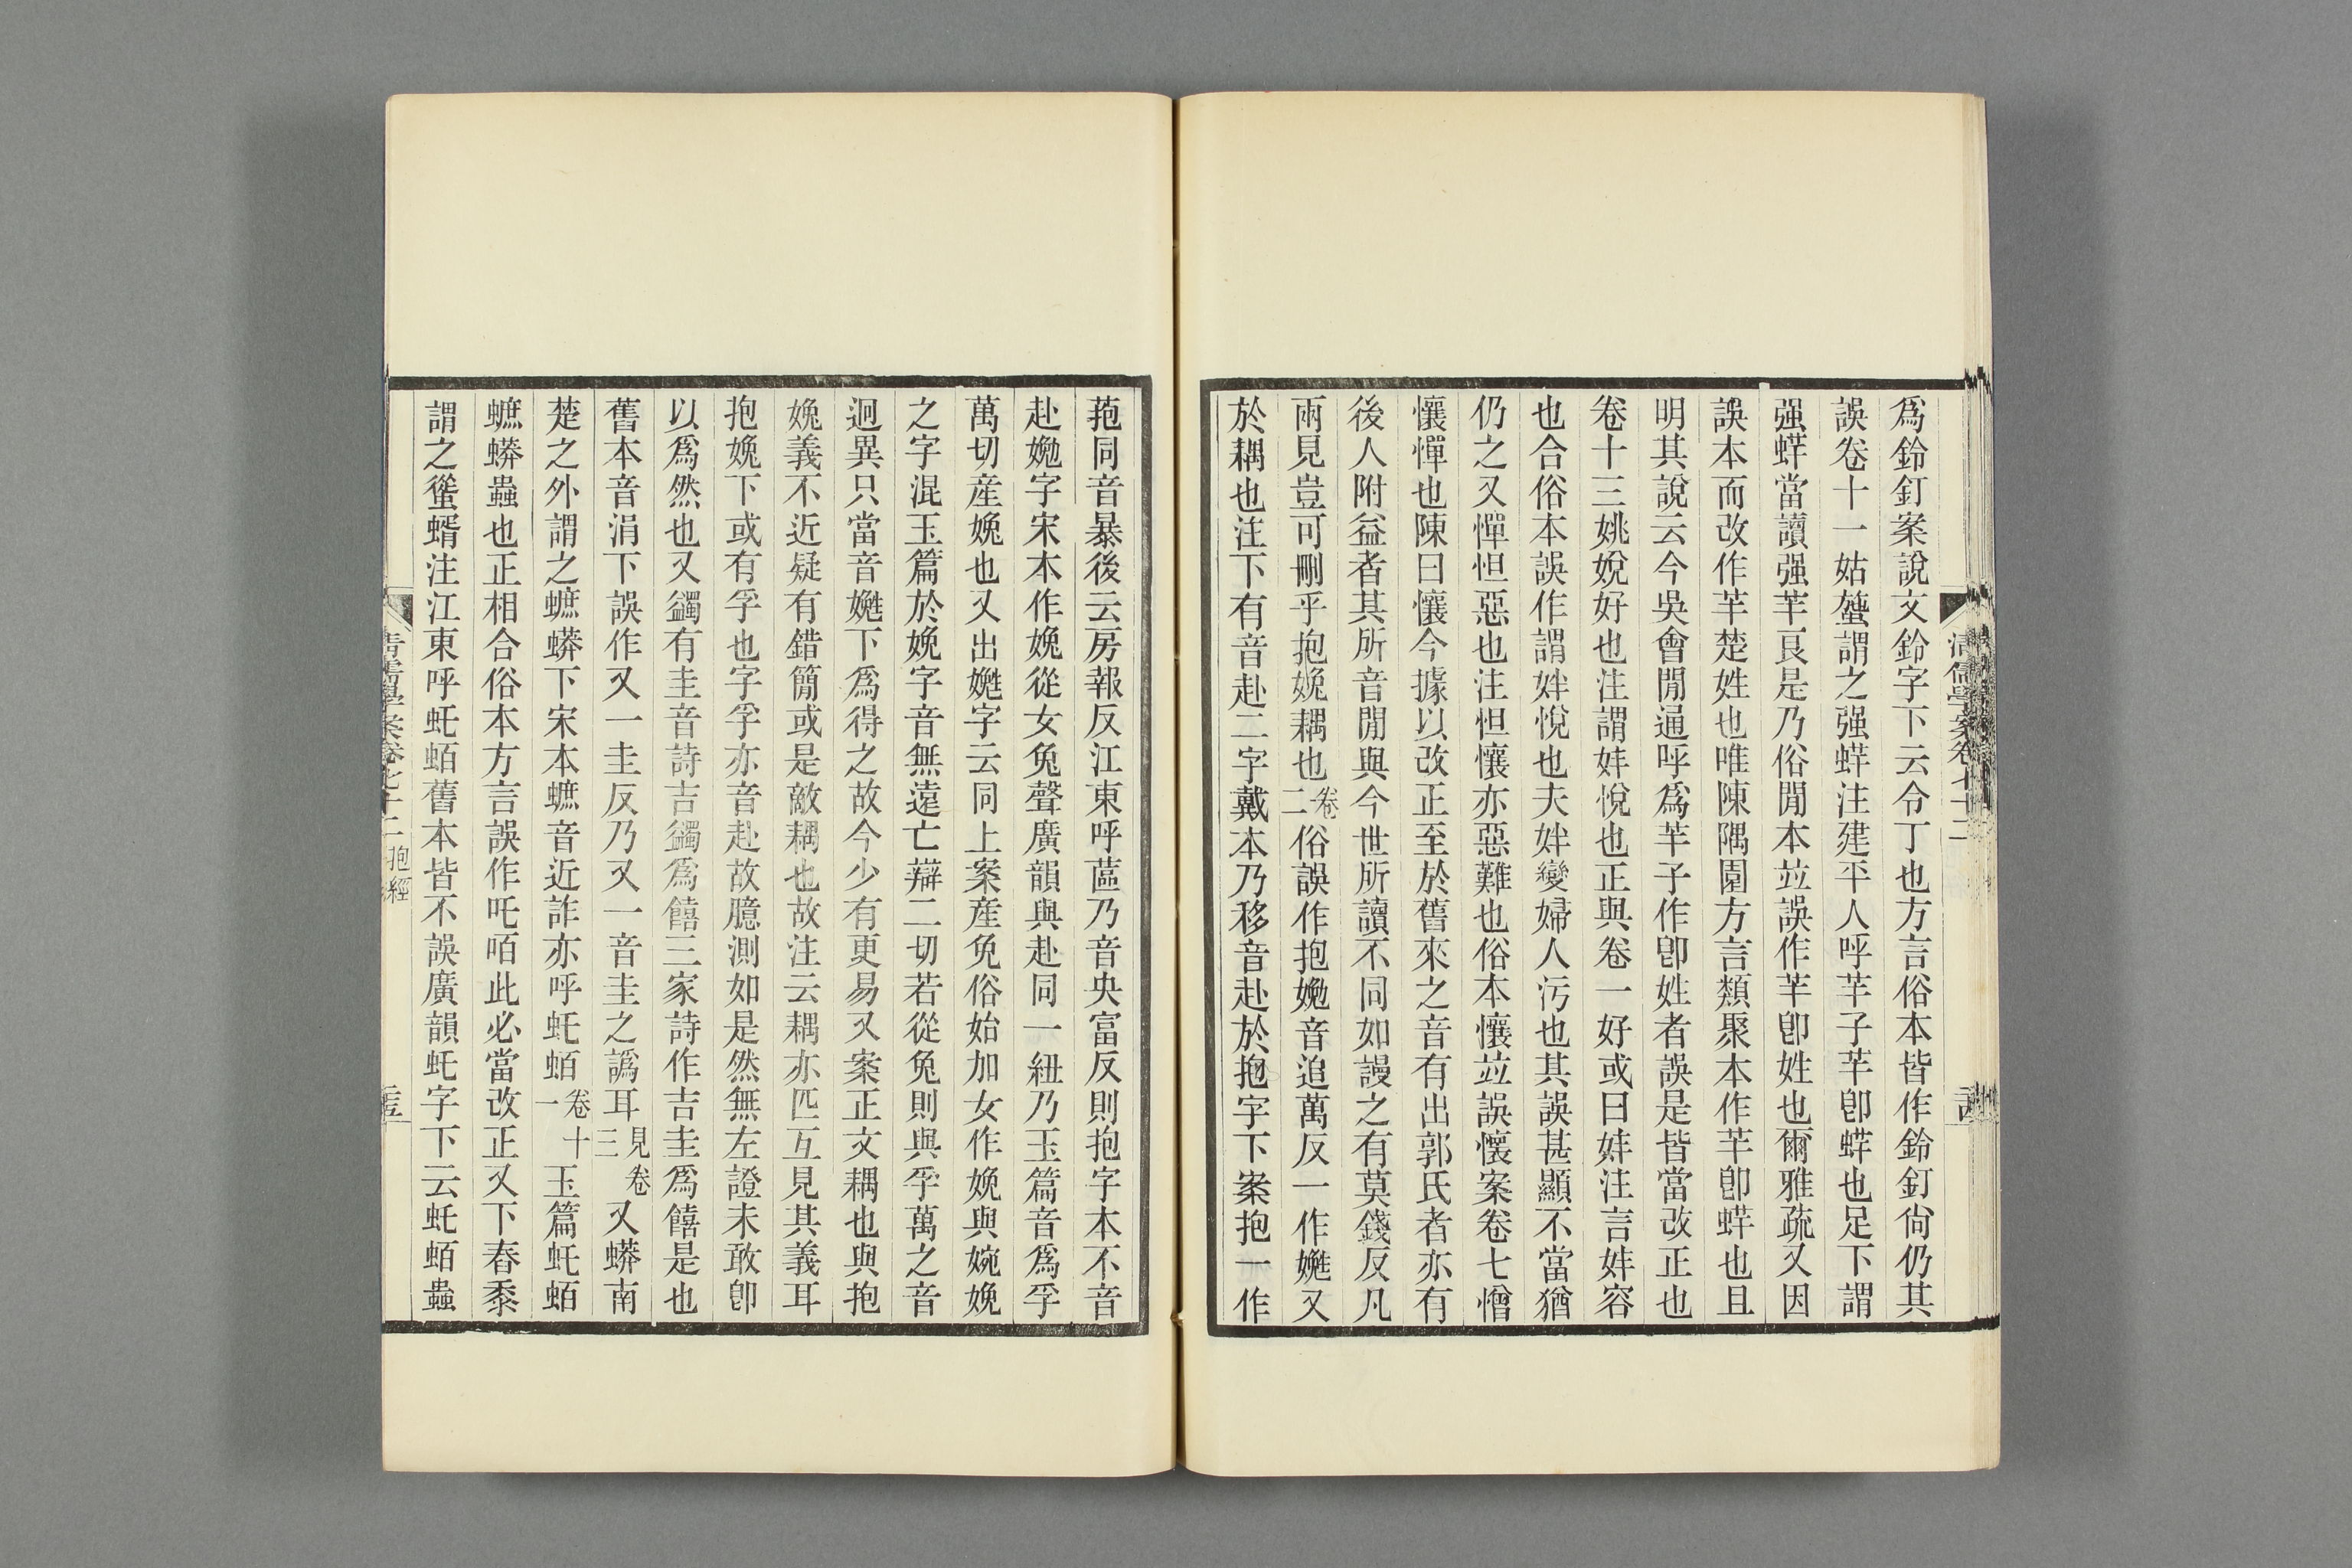 爲鈴釘案說文鈴字下云令丁也方言俗本皆作鈴釘尙仍其
誤卷十一姑䗐謂之强蛘注建平人呼芊子芊卽蛘也足下謂
强蛘當讀强芊良是乃俗閒本竝誤作芊卽姓也爾雅疏又因
誤本而改作芊楚姓也唯陳隅園方言類聚本作芊卽蛘也且
明其說云今吳會閒通呼爲芊子作卽姓者誤是皆當改正也
卷十三姚娧好也注謂妦悅也正與卷一好或曰妦注言妦容
也合俗本誤作謂姅悅也夫姅變婦人污也其誤甚顯不當猶
仍之又憚怛惡也注怛懹亦惡難也俗本懹竝誤懷案卷七憎
懹憚也陳曰懹今據以改正至於舊來之音有出郭氏者亦有
後人附益者其所音閒與今世所讀不同如謾之有莫錢反凡
兩見豈可刪乎抱娩耦也卷二俗誤作抱㜔音追萬反一作嬎又
於耦也注下有音赴二字戴本乃移音赴於抱字下案抱一作
菢同音暴後云房報反江東呼蓲乃音央富反則抱字本不音
赴㜔字宋本作娩從女兔聲廣韻與赴同一紐乃玉篇音爲孚
萬切産娩也又出嬎字云同上案産免俗始加女作娩與婉娩
之字混玉篇於娩字音無遠亡辯二切若從兔則與孚萬之音
迥異只當音嬎下爲得之故今少有更易又案正文耦也與抱
娩義不近疑有錯簡或是敵耦也故注云耦亦匹互見其義耳
抱娩下或有孚也字孚亦音赴故臆測如是然無左證未敢卽
以爲然也又蠲有圭音詩吉蠲爲饎三家詩作吉圭爲饎是也
舊本音涓下誤作又一圭反乃又一音圭之譌耳見卷三又蟒南
楚之外謂之蟅蟒下宋本蟅音近詐亦呼虴蛨卷十一玉篇虴蛨
蟅蟒蟲也正相合俗本方言誤作吒咟此必當改正又下舂黍
謂之𧑓蝑注江東呼虴蛨舊本皆不誤廣韻虴字下云虴蛨蟲
清儒學案卷七十二
清儒學案卷七十二 抱經